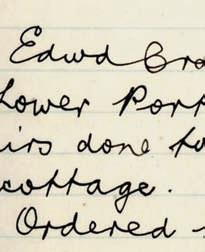 Edwd Cra
Lower Port
irs done to
cottage.
Ordered